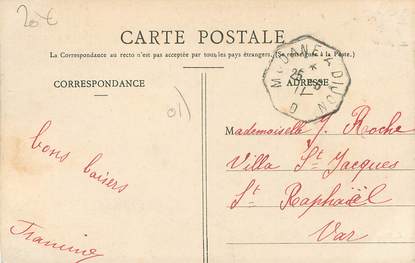 20€
CARTE POSTALE
La Correspondance au recto n'est pas acceptée par tous les pays étrangers. (Se renseigner à la Poste.)
CORRESPONDANCE
ADRESSE
MODANE A DIJON
25
D
bons baisers
Mademoiselle J. Roche
Villa St Jacques
St Raphaël
Var